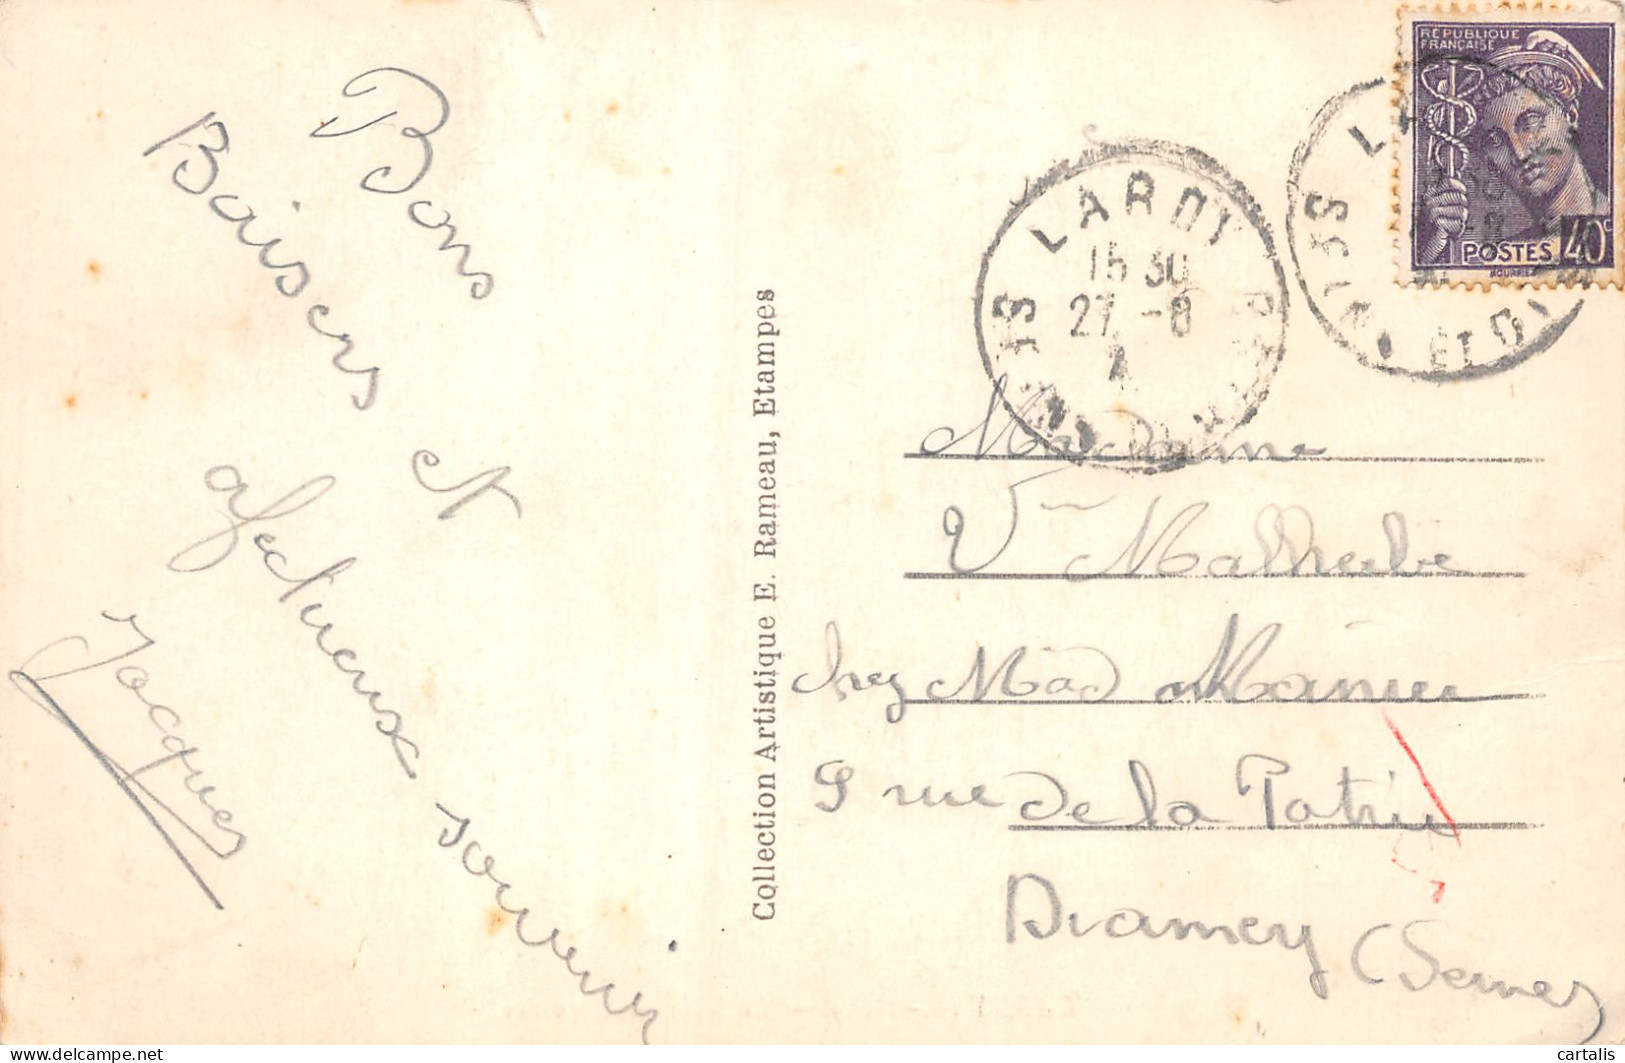 Bons
Baisers et
affectueux souvenir
Jacques
Collection Artistique E. Rameau, Etampes
RÉPUBLIQUE
FRANÇAISE
POSTES 40c
LARDY
15 30
27 -8
SEINE
Madame
Vve Malherbe
chez Mad Maniez
9 rue de la Patrie
Dramey (Seine)
delcampe.net
cartalis